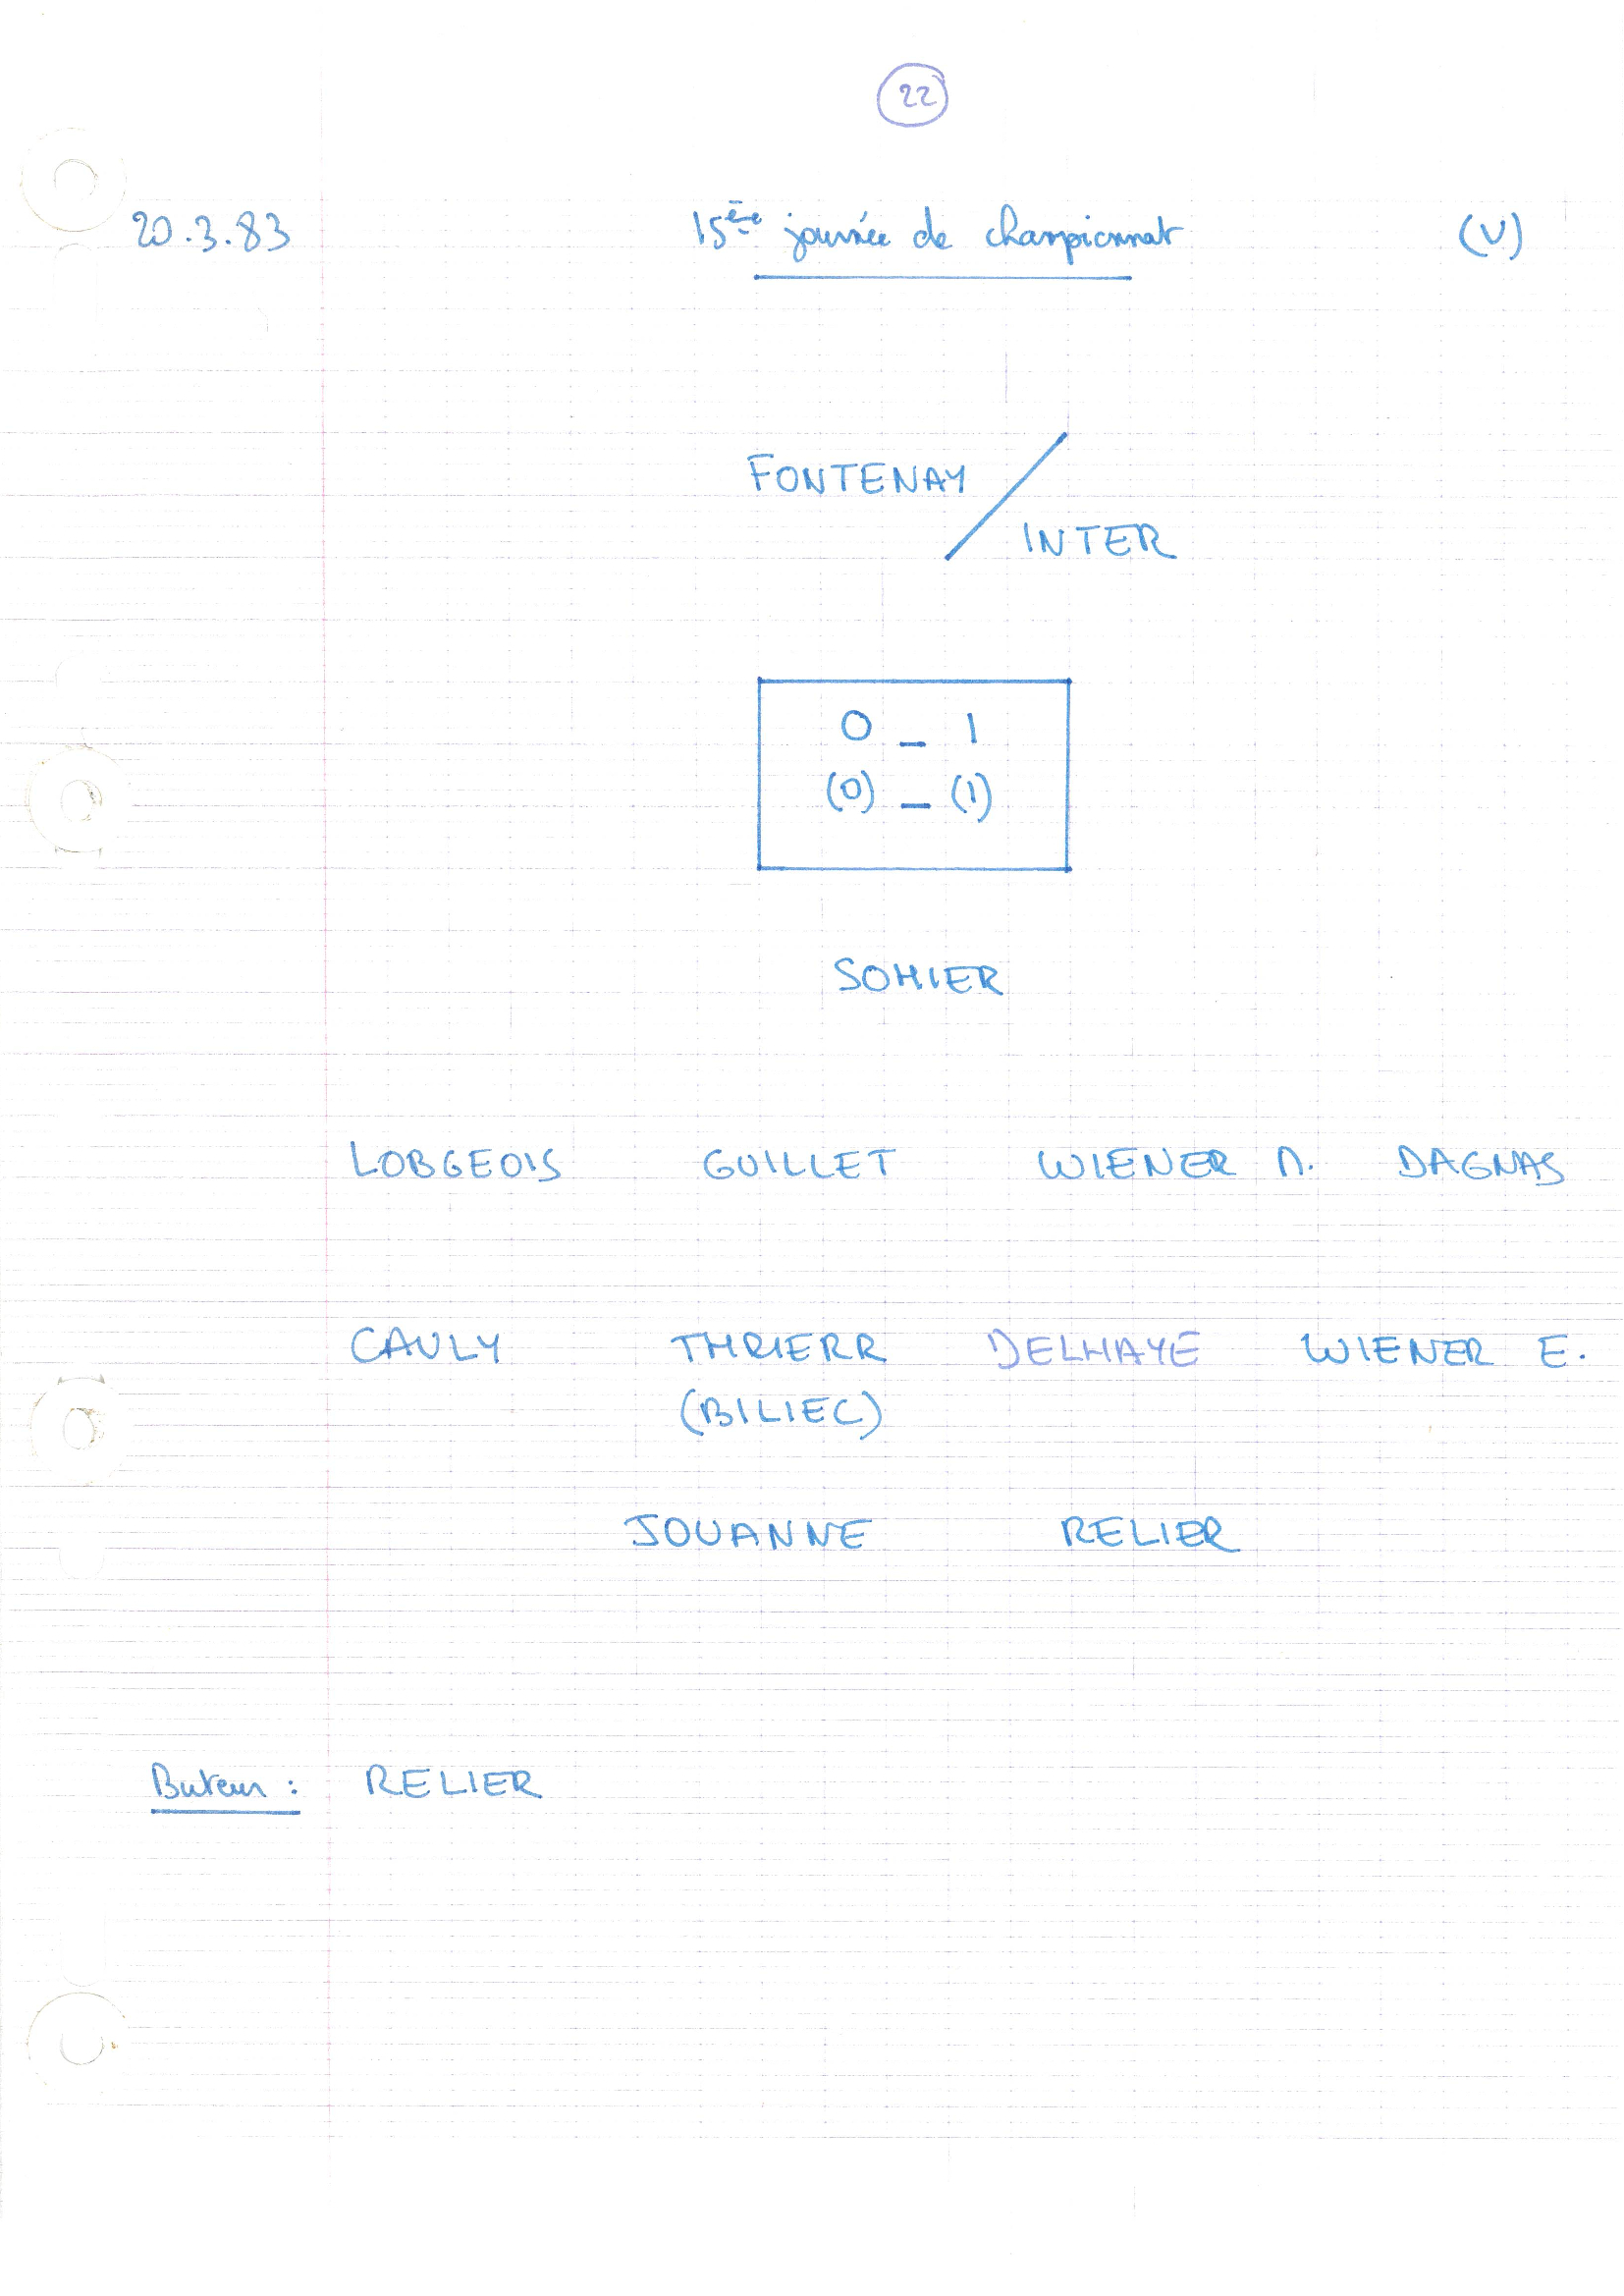 22
20.3.83 15ème journée de championnat (V)
FONTENAY /
INTER
0 _ 1
(0) _ (1)
SOHIER
LOBGEOIS GUILLET WIENER M. DAGNAS
CAULY THRIERR DELHAYE WIENER E.
(BILIEC)
JOUANNE RELIER
Buteur : RELIER